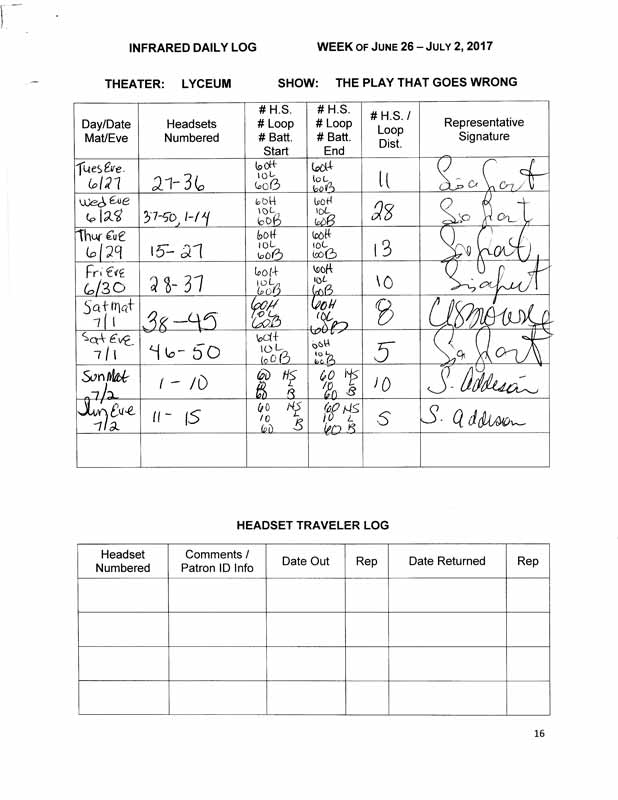 INFRARED DAILY LOG WEEK OF JUNE 26 – JULY 2, 2017
THEATER: LYCEUM SHOW: THE PLAY THAT GOES WRONG
Day/Date Mat/Eve Headsets Numbered # H.S. # Loop # Batt. Start # H.S. # Loop # Batt. End # H.S. / Loop Dist. Representative Signature
Tues Eve. 6/27 27-36 60H 10L 60B 60H 10L 60B 11
Wed Eve 6/28 37-50, 1-14 60H 10L 60B 60H 10L 60B 28
Thur Eve 6/29 15-27 60H 10L 60B 60H 10L 60B 13
Fri Eve 6/30 28-37 60H 10L 60B 60H 10L 60B 10
Sat mat 7/1 38-45 60H 10L 60B 60H 10L 60B 8
Sat Eve 7/1 46-50 60H 10L 60B 60H 10L 60B 5
Sun Mat 7/2 1-10 60 HS L B 60 HS 10 L 60 B 10 S. Addison
Sun Eve 7/2 11-15 60 HS 10 L 60 B 60 HS 10 L 60 B 5 S. Addison
HEADSET TRAVELER LOG
Headset Numbered Comments / Patron ID Info Date Out Rep Date Returned Rep
16